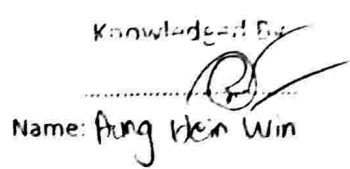 Knowledged By
Name: Aung Hein Win